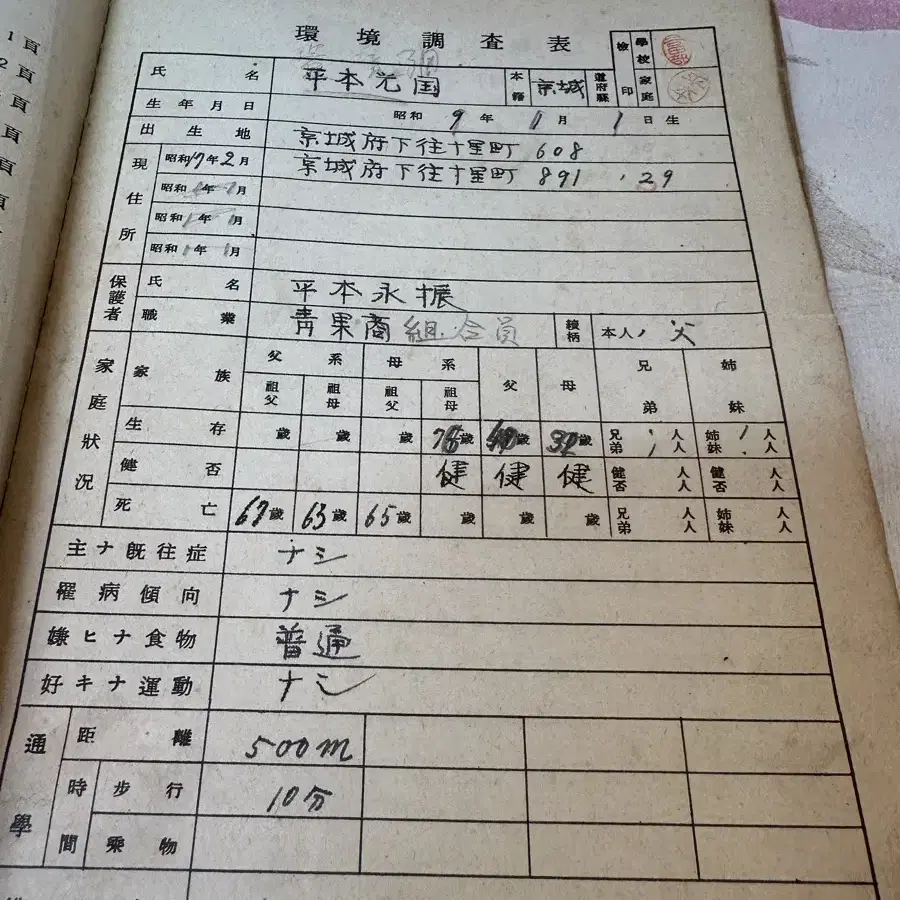 1頁
2頁
頁
頁
頁
環境調査表
檢印 學校 家庭
氏名 平本光国 本籍 京城 道府縣
生年月日 昭和9年11月1日生
出生地 京城府下往十里町 608
現住所 昭和17年2月 京城府下往十里町 891 . 29
昭和 年 月
昭和 年 月
昭和 年 月
保護者 氏名 平本永振
職業 青果商組合員 續柄 本人ノ父
家庭狀況 家族 父系 母系 父 母 兄弟 姉妹
祖父 祖母 祖父 祖母
生存 歲 歲 歲 歲 歲 32歲 兄弟 人人 姉妹 人人
健否 健 健 健 健否 人人 健否 人人
死亡 67歲 63歲 65歲 歲 歲 歲 兄弟 人人 姉妹 人人
主ナ既往症 ナシ
罹病傾向 ナシ
嫌ヒナ食物 普通
好キナ運動 ナシ
通學 距離 500m
時間 步行 10分
乘物